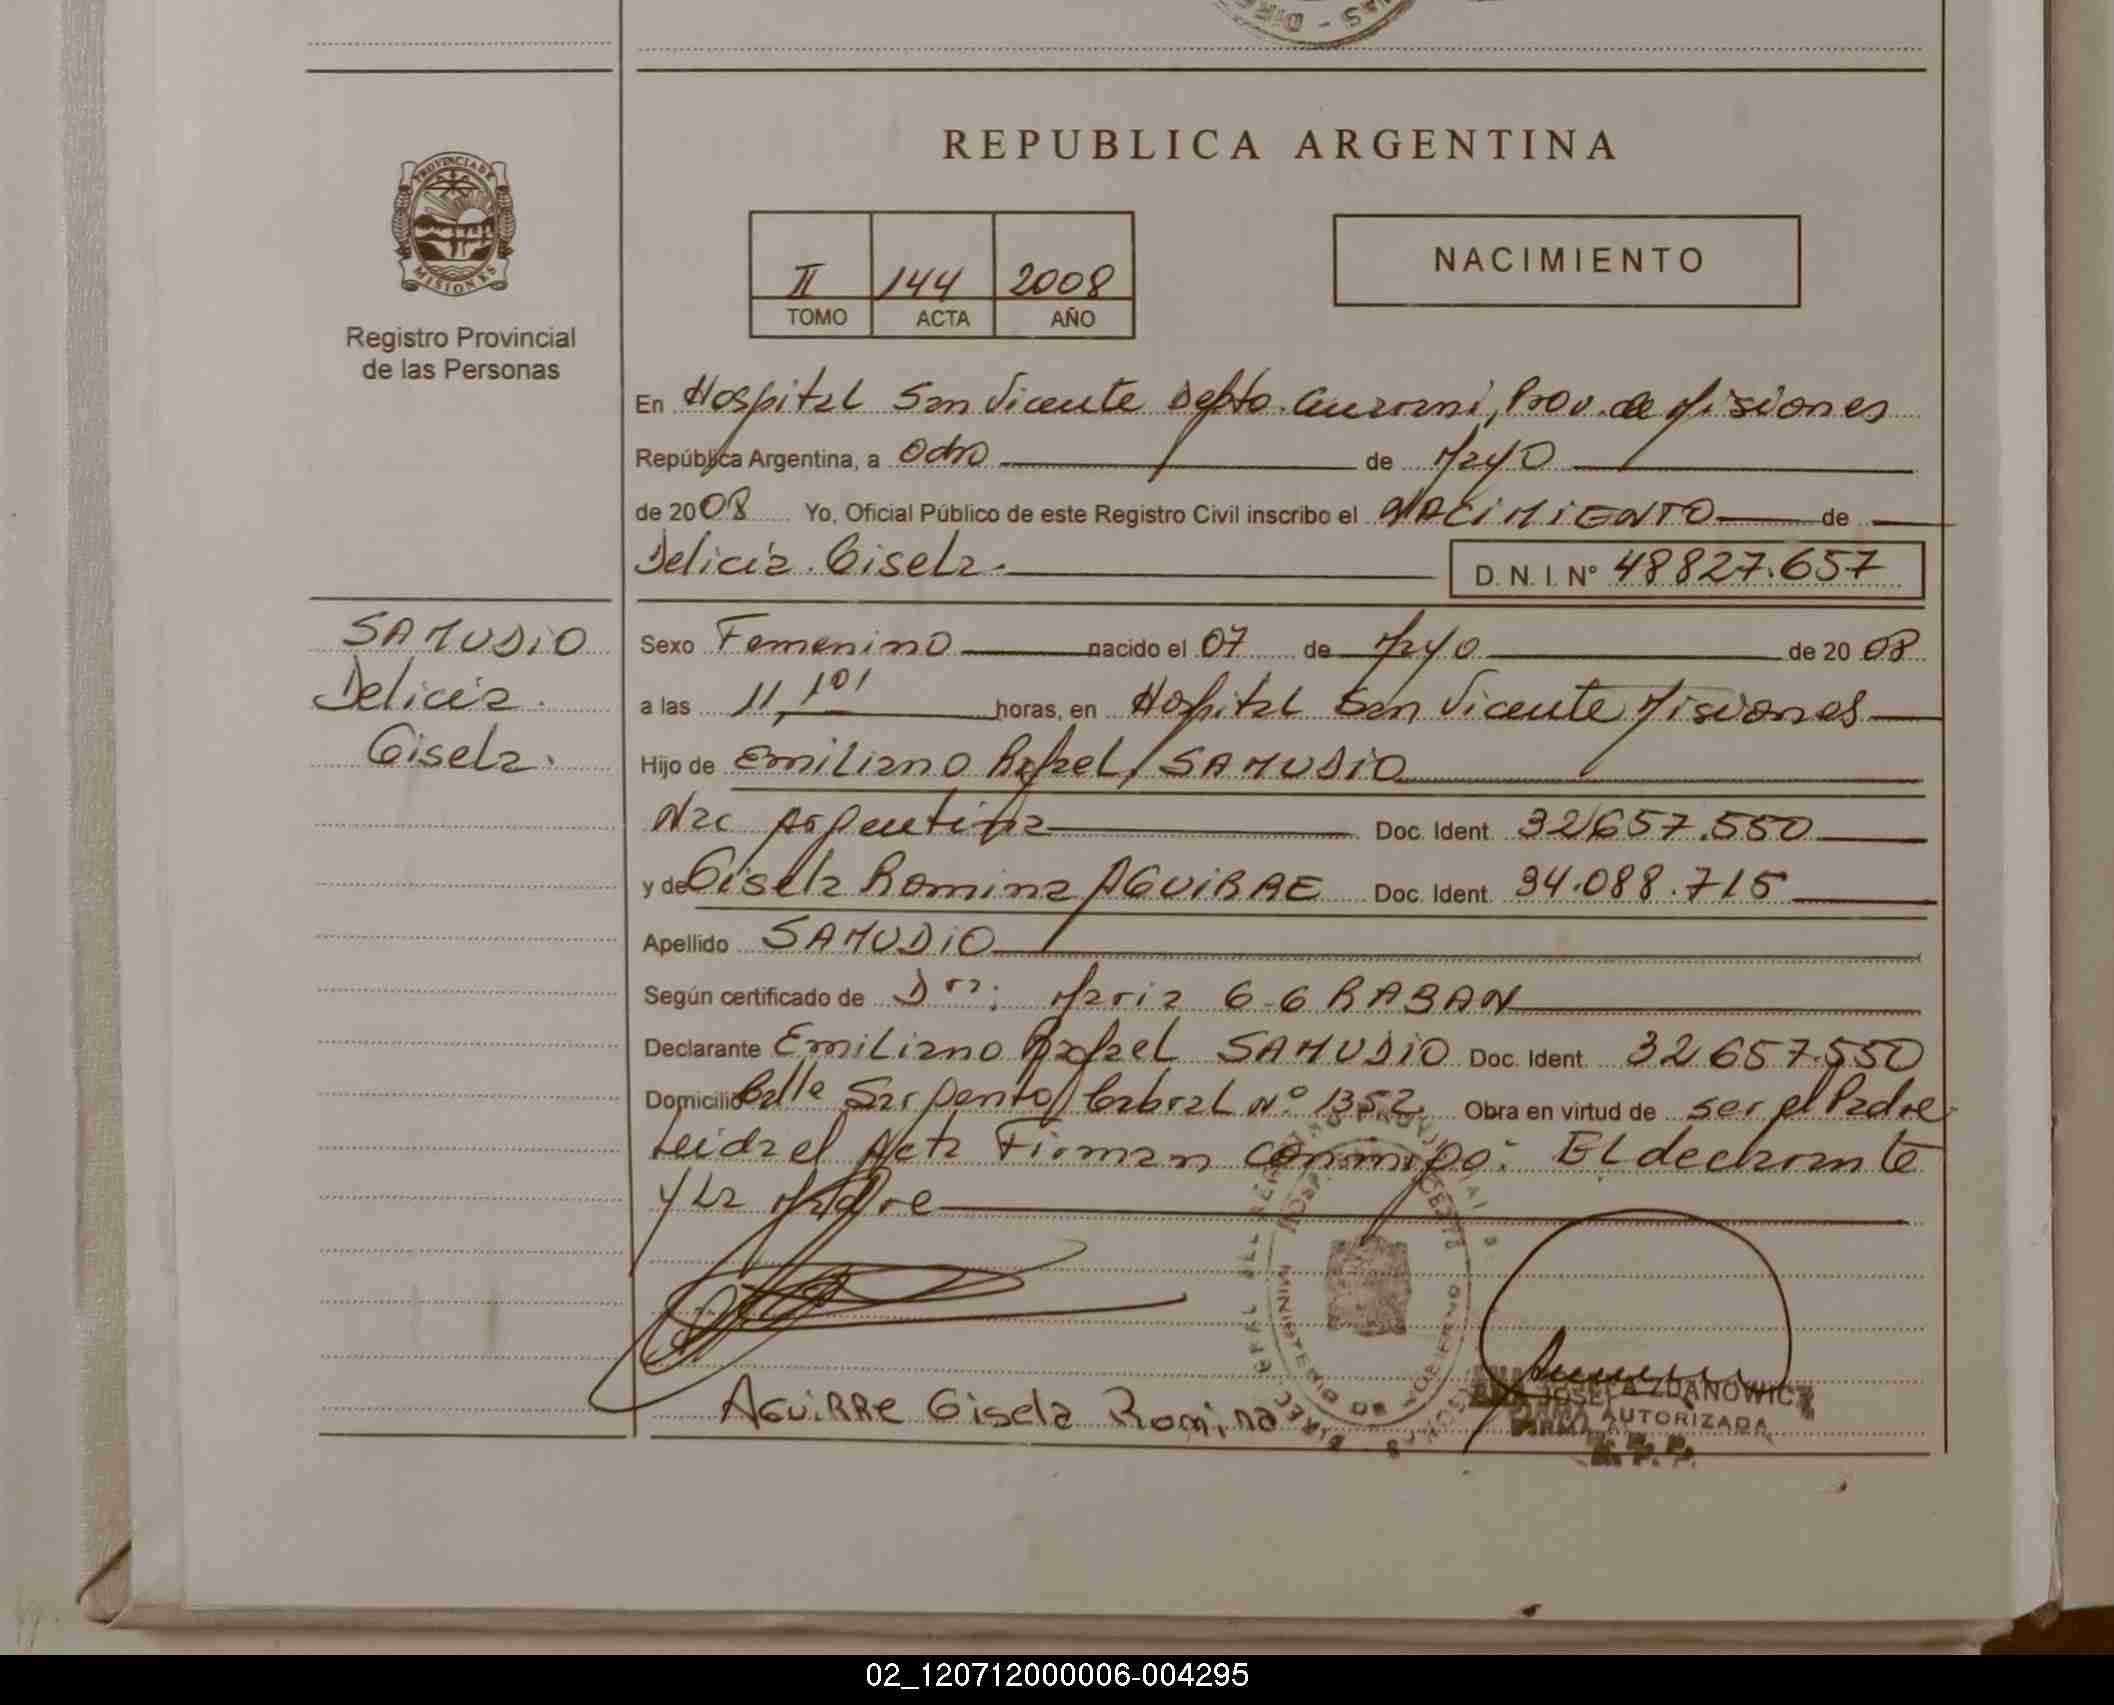 REPUBLICA ARGENTINA
PROVINCIA DE
MISIONES
Registro Provincial
de las Personas
II 144 2008
TOMO ACTA AÑO
NACIMIENTO
En Hospital San Vicente Depto. Guarani, Prov. de Misiones
República Argentina, a Ocho de Mayo
de 2008 Yo, Oficial Público de este Registro Civil inscribo el NACIMIENTO de
Delicia Gisela.
D. N. I. Nº 48827.657
SAMUDIO
Delicia
Gisela.
Sexo Femenino nacido el 07 de Mayo de 2008
a las 11,10' horas, en Hospital San Vicente Misiones
Hijo de Emiliano Rafael SAMUDIO
Nac Argentina Doc. Ident. 32657.550
y de Gisela Romina AGUIRRE Doc. Ident. 34.088.715
Apellido SAMUDIO
Según certificado de Dra: Maria G. GRABAN
Declarante Emiliano Rafael SAMUDIO Doc. Ident. 32657.550
Domicilio Calle Sargento Cabral Nº 1352. Obra en virtud de ser el Padre
Leida el Acta Firman conmigo: El declarante
y La Madre
AGUIRRE Gisela Romina
JOSEFA ZDANOWICZ
FIRMA AUTORIZADA
R. P. P.
MINISTERIO DE GOBIERNO
02_120712000006-004295